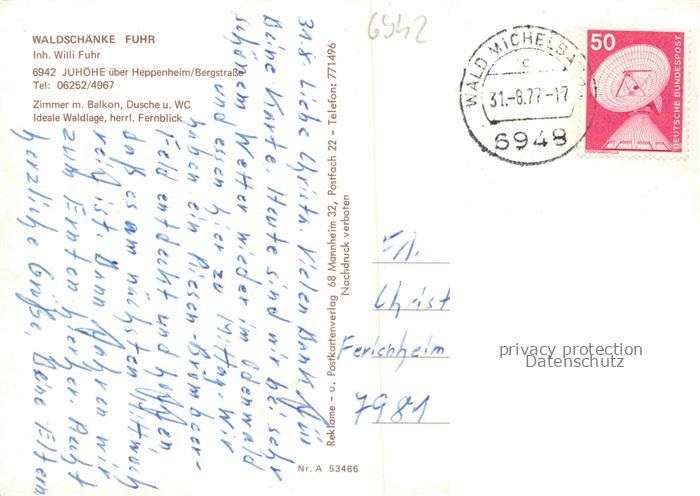 WALDSCHÄNKE FUHR
Inh. Willi Fuhr
6942 JUHÖHE über Heppenheim/Bergstraße
Tel: 06252/4967
Zimmer m. Balkon, Dusche u. WC
Ideale Waldlage, herrl. Fernblick
31.8. Liebe Christa. Vielen Dank für
Deine Karte. Heute sind wir bei sehr
schönem Wetter wieder im Odenwald
und essen hier zu Mittag. Wir
haben ein Riesen-Brombeer-
Feld entdeckt und hoffen,
daß es am nächsten Mittwoch
reif ist. Dann fahren wir
zum Ernten hierher. Recht
herzliche Grüße, Deine Eltern
Reklame- u. Postkartenverlag 68 Mannheim 32, Postfach 22 - Telefon: 771496
Nachdruck verboten
Nr. A 53466
6942
WALD MICHELBA
c
31.-8.77-17
6948
50
DEUTSCHE BUNDESPOST
Christ
Ferienheim
7981
privacy protection
Datenschutz